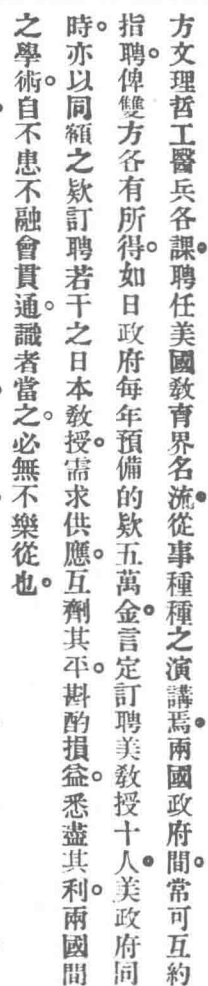 方文理哲工醫兵各課。聘任美國敎育界名流。從事種種之演講焉。兩國政府間。常可互約
指聘。俾雙方各有所得。如日政府每年預備的欵五萬金。言定訂聘美敎授十人。美政府同
時亦以同額之欵訂聘若干之日本敎授。需求供應。互劑其平。斟酌損益。悉盡其利。兩國間
之學術。自不患不融會貫通。識者當之。必無不樂從也。